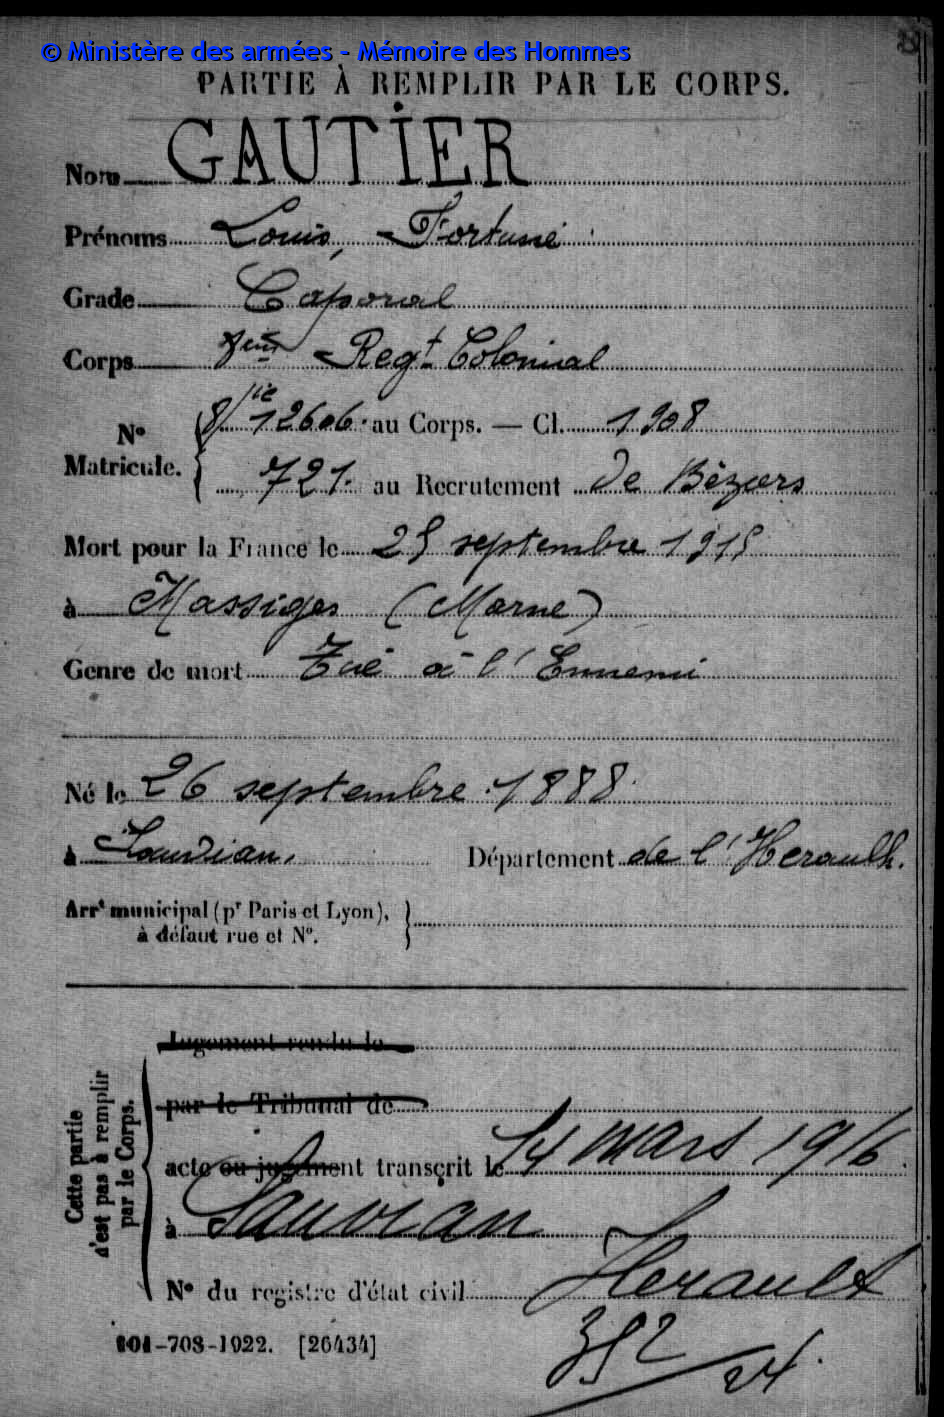 © Ministère des armées - Mémoire des Hommes
PARTIE À REMPLIR PAR LE CORPS.
Nom GAUTIER
Prénoms Louis, Fortuné
Grade Caporal
Corps 8ème Regt Colonial
N° Matricule. 12606 au Corps. — Cl. 1908
721 au Recrutement de Béziers
Mort pour la France le 25 septembre 1915
à Massiges (Marne)
Genre de mort Tué à l'Ennemi
Né le 26 septembre 1888
à Sauvian, Département de l'Herault.
Arrt municipal (pr Paris et Lyon),
à défaut rue et N°.
Jugement rendu le
par le Tribunal de
acte ou jugement transcrit le 14 mars 1916
à Sauvian
Herault
N° du registre d'état civil
Cette partie
n'est pas à remplir
par le Corps.
101-708-1922. [26434]
352